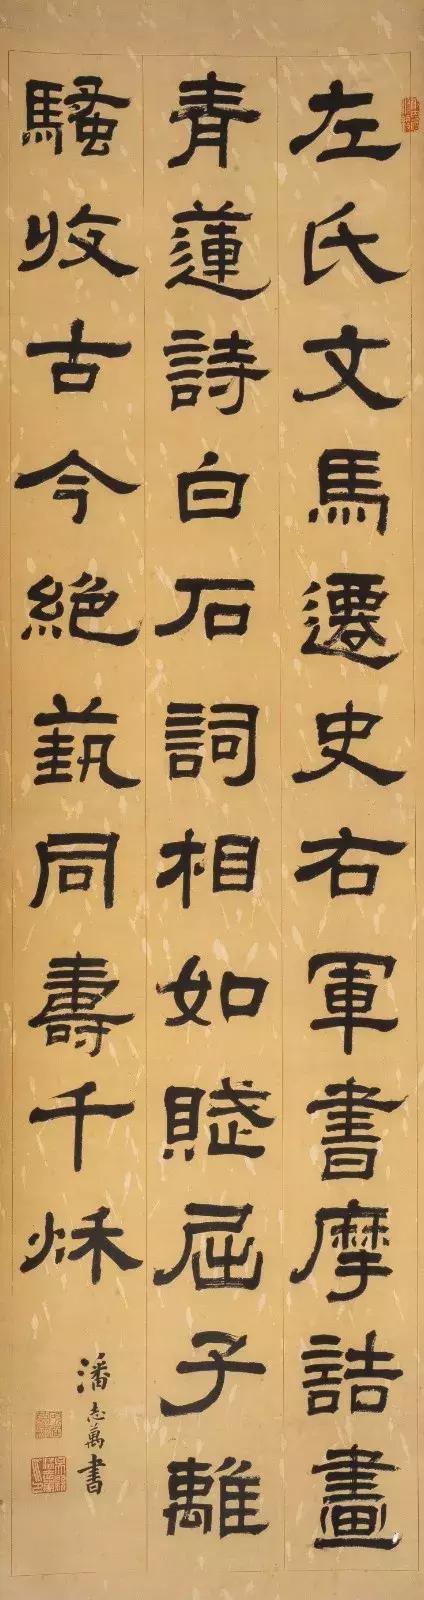 左氏文馬遷史右軍書摩詰畫
青蓮詩白石詞相如賦屈子離
騷收古今絕蓺同壽千秌
潘志萬書